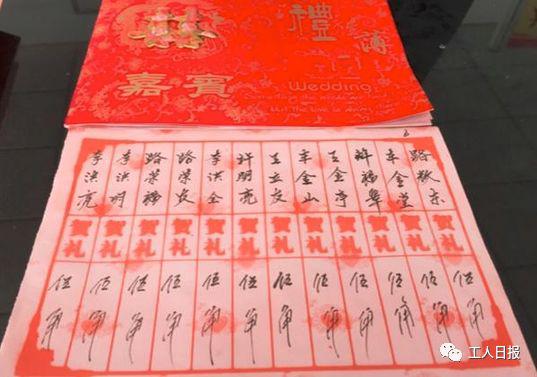 禮簿
嘉賓
Wedding
路敬东 贺礼 伍角
车金堂 贺礼 伍角
贺礼 伍角
王金亭 贺礼 伍角
车金山 贺礼 伍角
王立友 贺礼 伍角
许朋亮 贺礼 伍角
李洪全 贺礼 伍角
路荣友 贺礼 伍角
路荣 贺礼 伍角
李洪明 贺礼 伍角
李洪亮 贺礼 伍角
工人日报